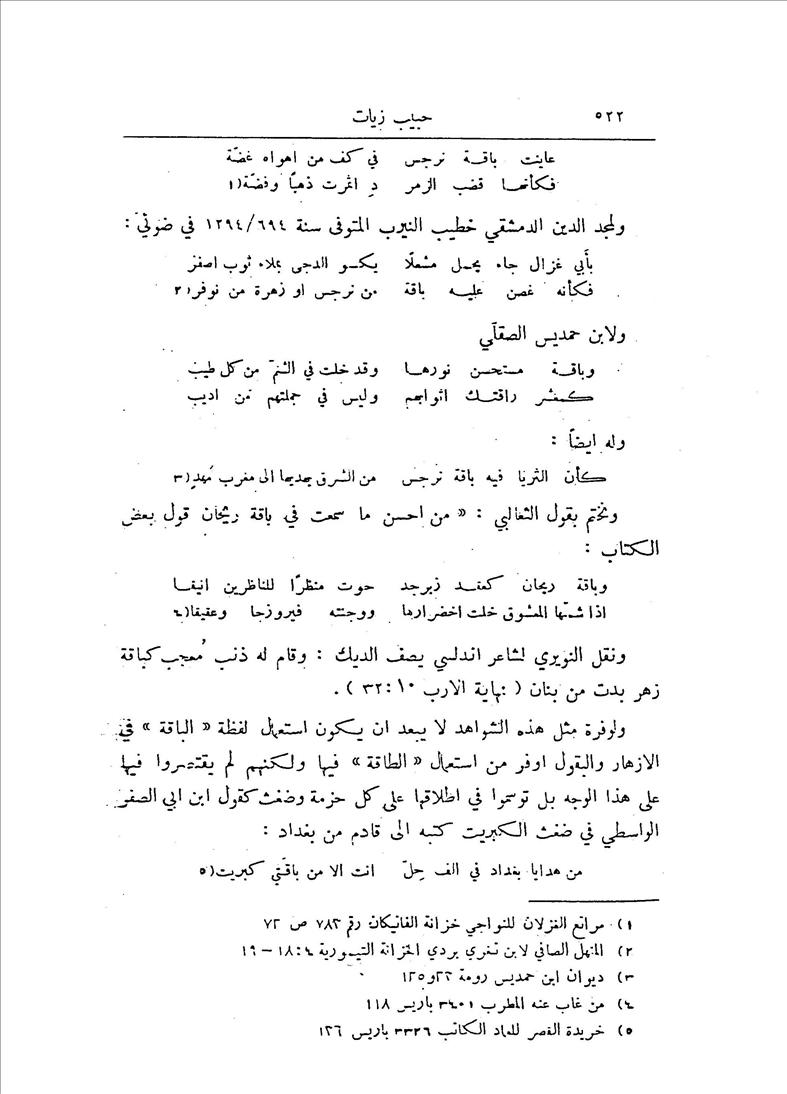 ٥٢٢ حبيب زيات
عاينت باقة نرجس في كف من اهواه غضّة
فكأنها قضب الزمر د اثمرت ذهباً وفضّة(١
ولمجد الدين الدمشقي خطيب النيرب المتوفى سنة ٦٩٤/١٢٩٤ في ضوئيّ :
بأبي غزال جاء يحمل مشعلًا يكسو الدجى بملاء ثوب اصفر
فكأنه غصن عليه باقة من نرجس او زهرة من نوفر(٢
ولابن حمديس الصقلّي
وباقة مستحسن نورها وقد خلت في الشم من كل طيب
كمعشر راقتك اثوابهم وليس في جملتهم من اديب
وله ايضاً :
كأن الثريا فيه باقة نرجس من الشرق يهديها الى مغرب مُهدِ(٣
ونختم بقول الثعالبي : « من احسن ما سمعت في باقة ريحان قول بعض
الكتاب :
وباقة ريحان كعقد زبرجد حوت منظرًا للناظرين انيقا
اذا شمّها المعشوق خلت اخضرارها ووجنته فيروزجا وعقيقا(٤
ونقل النويري لشاعر اندلسي يصف الديك : وقام له ذنب مُعجب كباقة
زهر بدت من بنان ( نهاية الارب ١٠:٣٢ ) .
ولوفرة مثل هذه الشواهد لا يبعد ان يكون استعمال لفظة « الباقة » في
الازهار والبقول اوفر من استعمال « الطاقة » فيها ولكنهم لم يقتصروا فيها
على هذا الوجه بل توسعوا في اطلاقها على كل حزمة وضغث كقول ابن ابي الصقر
الواسطي في ضغث الكبريت كتبه الى قادم من بغداد :
من هدايا بغداد في الف حِلّ انت الا من باقَتي كبريت(٥
١) مراتع الغزلان للنواجي خزانة الفاتيكان رقم ٧٨٣ ص ٧٢
٢) المنهل الصافي لابن تغري بردي الخزانة التيمورية ٤:١٨ – ١٩
٣) ديوان ابن حمديس رومة ٢٢و١٢٥
٤) من غاب عنه المطرب ٣٤٠١ باريس ١١٨
٥) خريدة القصر للعماد الكاتب ٣٣٢٦ باريس ١٢٦